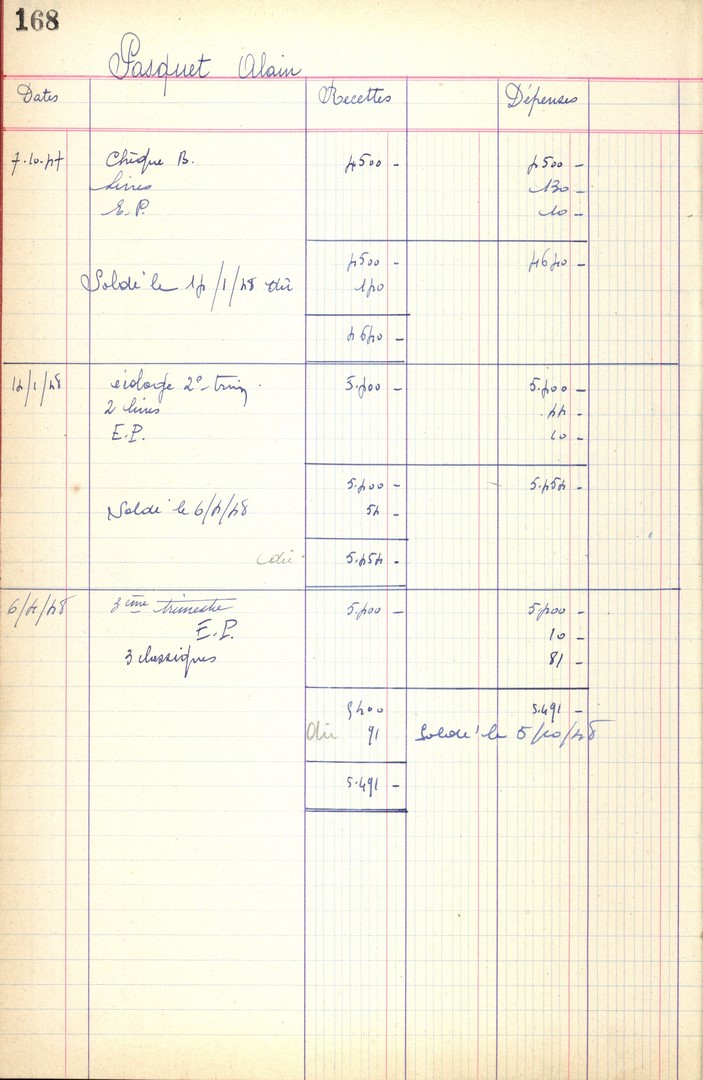 168
Pasquet Alain
Dates Recettes Dépenses
7.10.47 Chèque B. 4500 - 4500 -
Livres 130 -
E.P. 10 -
4500 - 4640 -
Soldé le 14/1/48 dû 140
4640 -
14/1/48 écolage 2e trim. 5.400 - 5.400 -
2 livres 44 -
E.P. 10 -
5.400 - 5.454 -
Soldé le 6/4/48 54 -
dû 5.454 -
6/4/48 3ème trimestre 5.400 - 5.400 -
E.P. 10 -
3 classiques 81 -
5400 5.491 -
dû 91 Soldé le 5/10/48
5.491 -